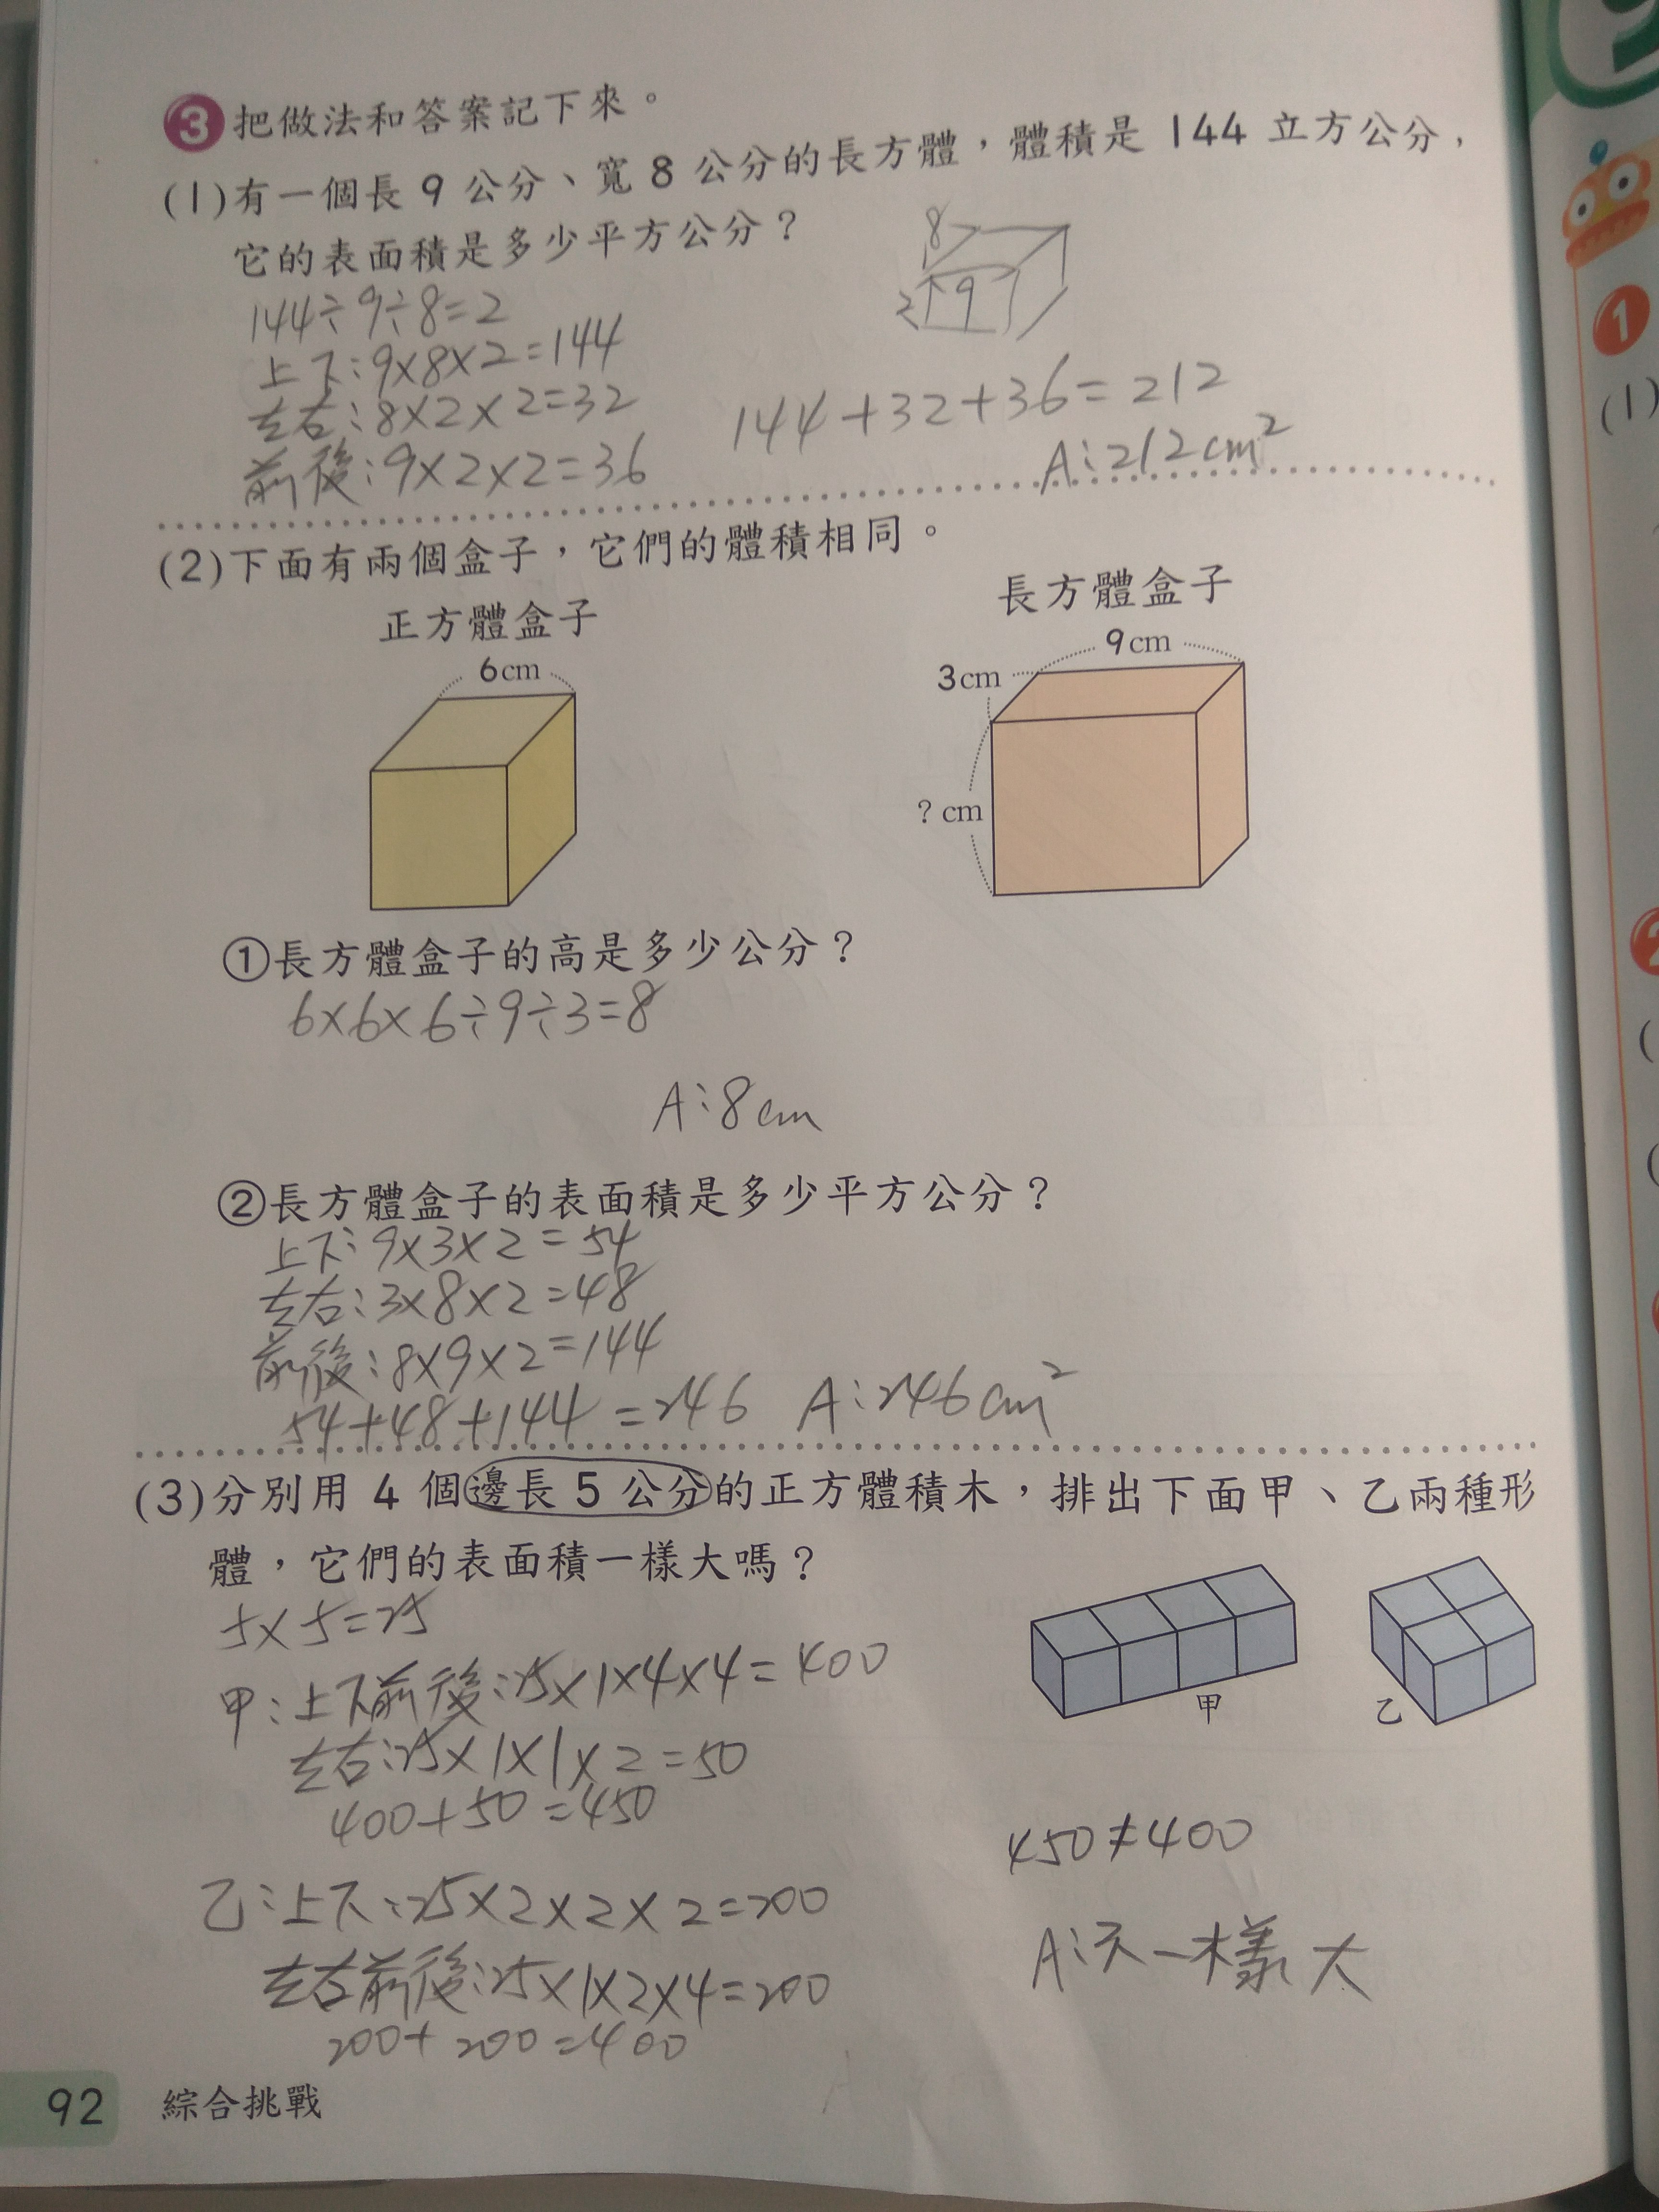 3 把做法和答案記下來。
(1)有一個長 9 公分、寬 8 公分的長方體，體積是 144 立方公分，
它的表面積是多少平方公分？
8
2 9
144÷9÷8=2
上下:9×8×2=144
左右:8×2×2=32
前後:9×2×2=36
144+32+36=212
A:212cm²
(2)下面有兩個盒子，它們的體積相同。
正方體盒子
長方體盒子
6cm
9cm
3cm
? cm
①長方體盒子的高是多少公分？
6×6×6÷9÷3=8
A:8cm
②長方體盒子的表面積是多少平方公分？
上下:9×3×2=54
左右:3×8×2=48
前後:8×9×2=144
54+48+144=246 A:246cm²
(3)分別用 4 個邊長 5 公分的正方體積木，排出下面甲、乙兩種形
體，它們的表面積一樣大嗎？
5×5=25
甲:上下前後:25×1×4×4=400
左右:25×1×1×2=50
400+50=450
甲
乙
450≠400
乙:上下:25×2×2×2=200
左右前後:25×1×2×4=200
200+200=400
A:不一樣大
92 綜合挑戰
1
(1)
2